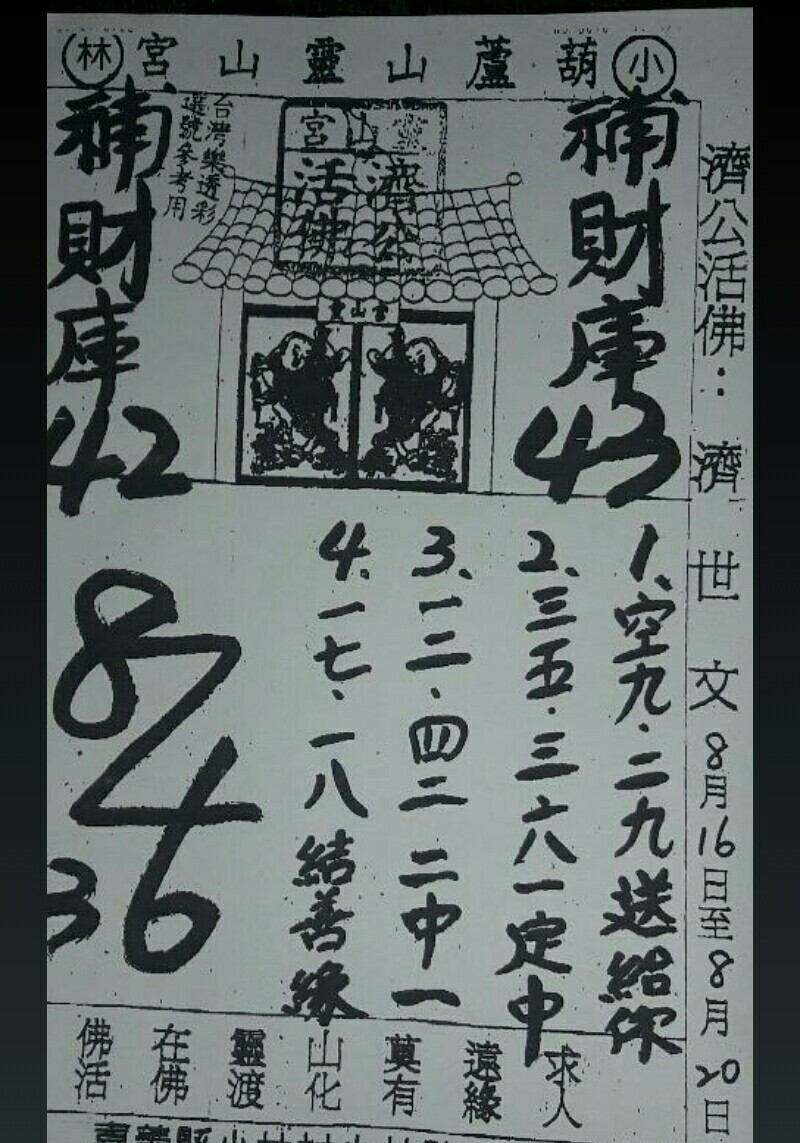 小葫蘆山靈山宮林
濟公活佛：濟世文8月16日至8月20日
補財庫
43
台灣樂透彩
選號參考用
濟公
活佛
補財庫
42
1、空九．二九送給你
2、三五．三六八一定中
3、一二．四二二中一
4、一七．一八結善緣
8
4
6
3
求人
遠緣
莫有
山化
靈渡
在佛
佛活